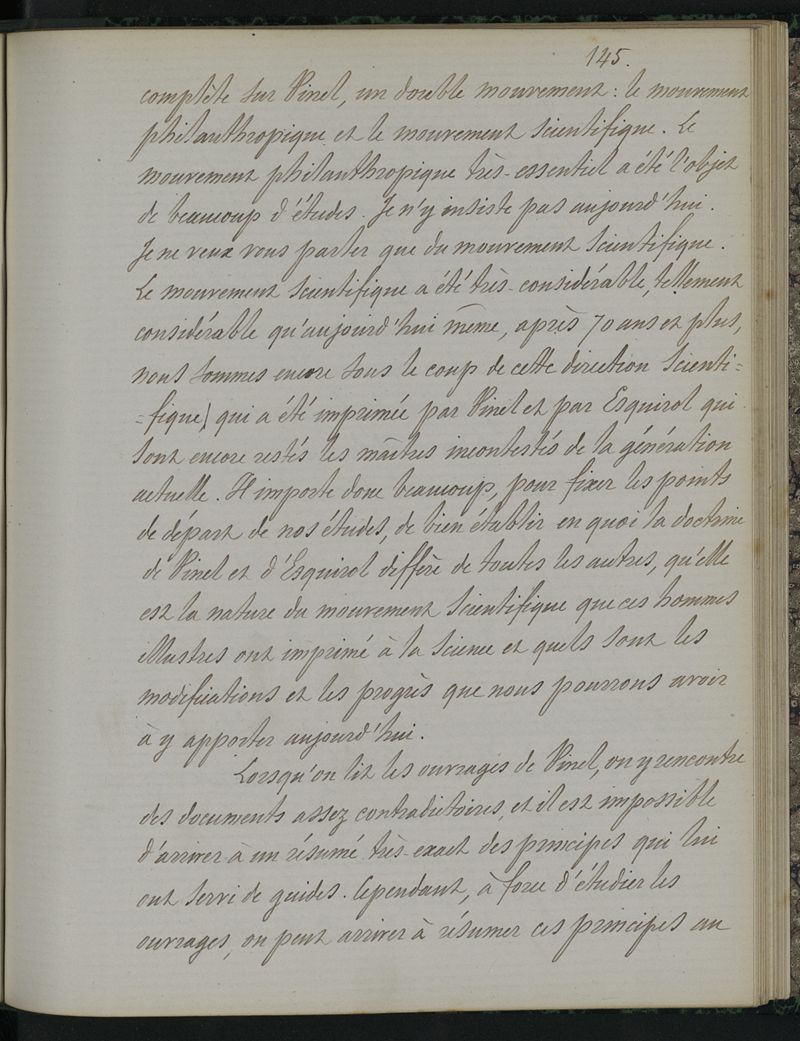 145.
complète sur Pinel, un double mouvement : le mouvement
philanthropique et le mouvement scientifique. Le
mouvement philanthropique très-essentiel a été l'objet
de beaucoup d'études. Je n'y insiste pas aujourd'hui.
Je ne veux vous parler que du mouvement scientifique.
Le mouvement scientifique a été très-considérable, tellement
considérable qu'aujourd'hui même, après 70 ans et plus,
nous sommes encore sous le coup de cette direction scienti=
=fique qui a été imprimée par Pinel et par Esquirol qui
sont encore restés les maîtres incontestés de la génération
actuelle. Il importe donc beaucoup, pour fixer les points
de départ de nos études, de bien établir en quoi la doctrine
de Pinel et d'Esquirol diffère de toutes les autres, qu'elle
est la nature du mouvement scientifique que ces hommes
illustres ont imprimé à la science et quels sont les
modifications et les progrès que nous pourrons avoir
à y apporter aujourd'hui.
Lorsqu'on lit les ouvrages de Pinel, on y rencontre
des documents assez contradictoires, et il est impossible
d'arriver à un résumé très-exact des principes qui lui
ont servi de guides. Cependant, à force d'étudier les
ouvrages, on peut arriver à résumer ces principes au